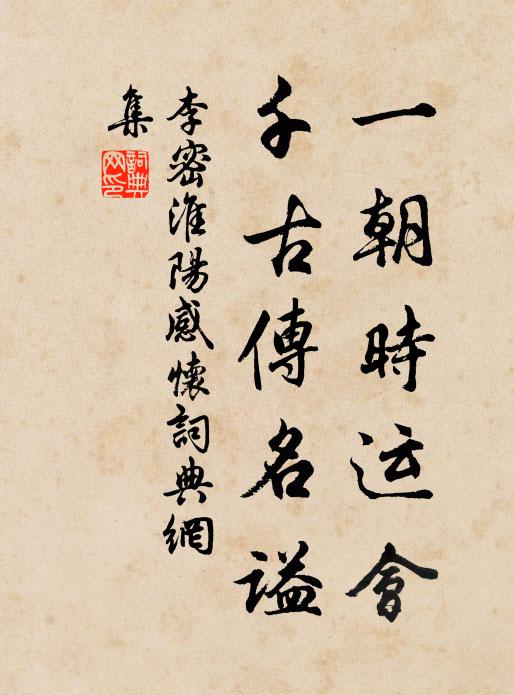 一朝時运會
千古傳名谥
李密淮陽感懷詞典網
集
詞典
网印